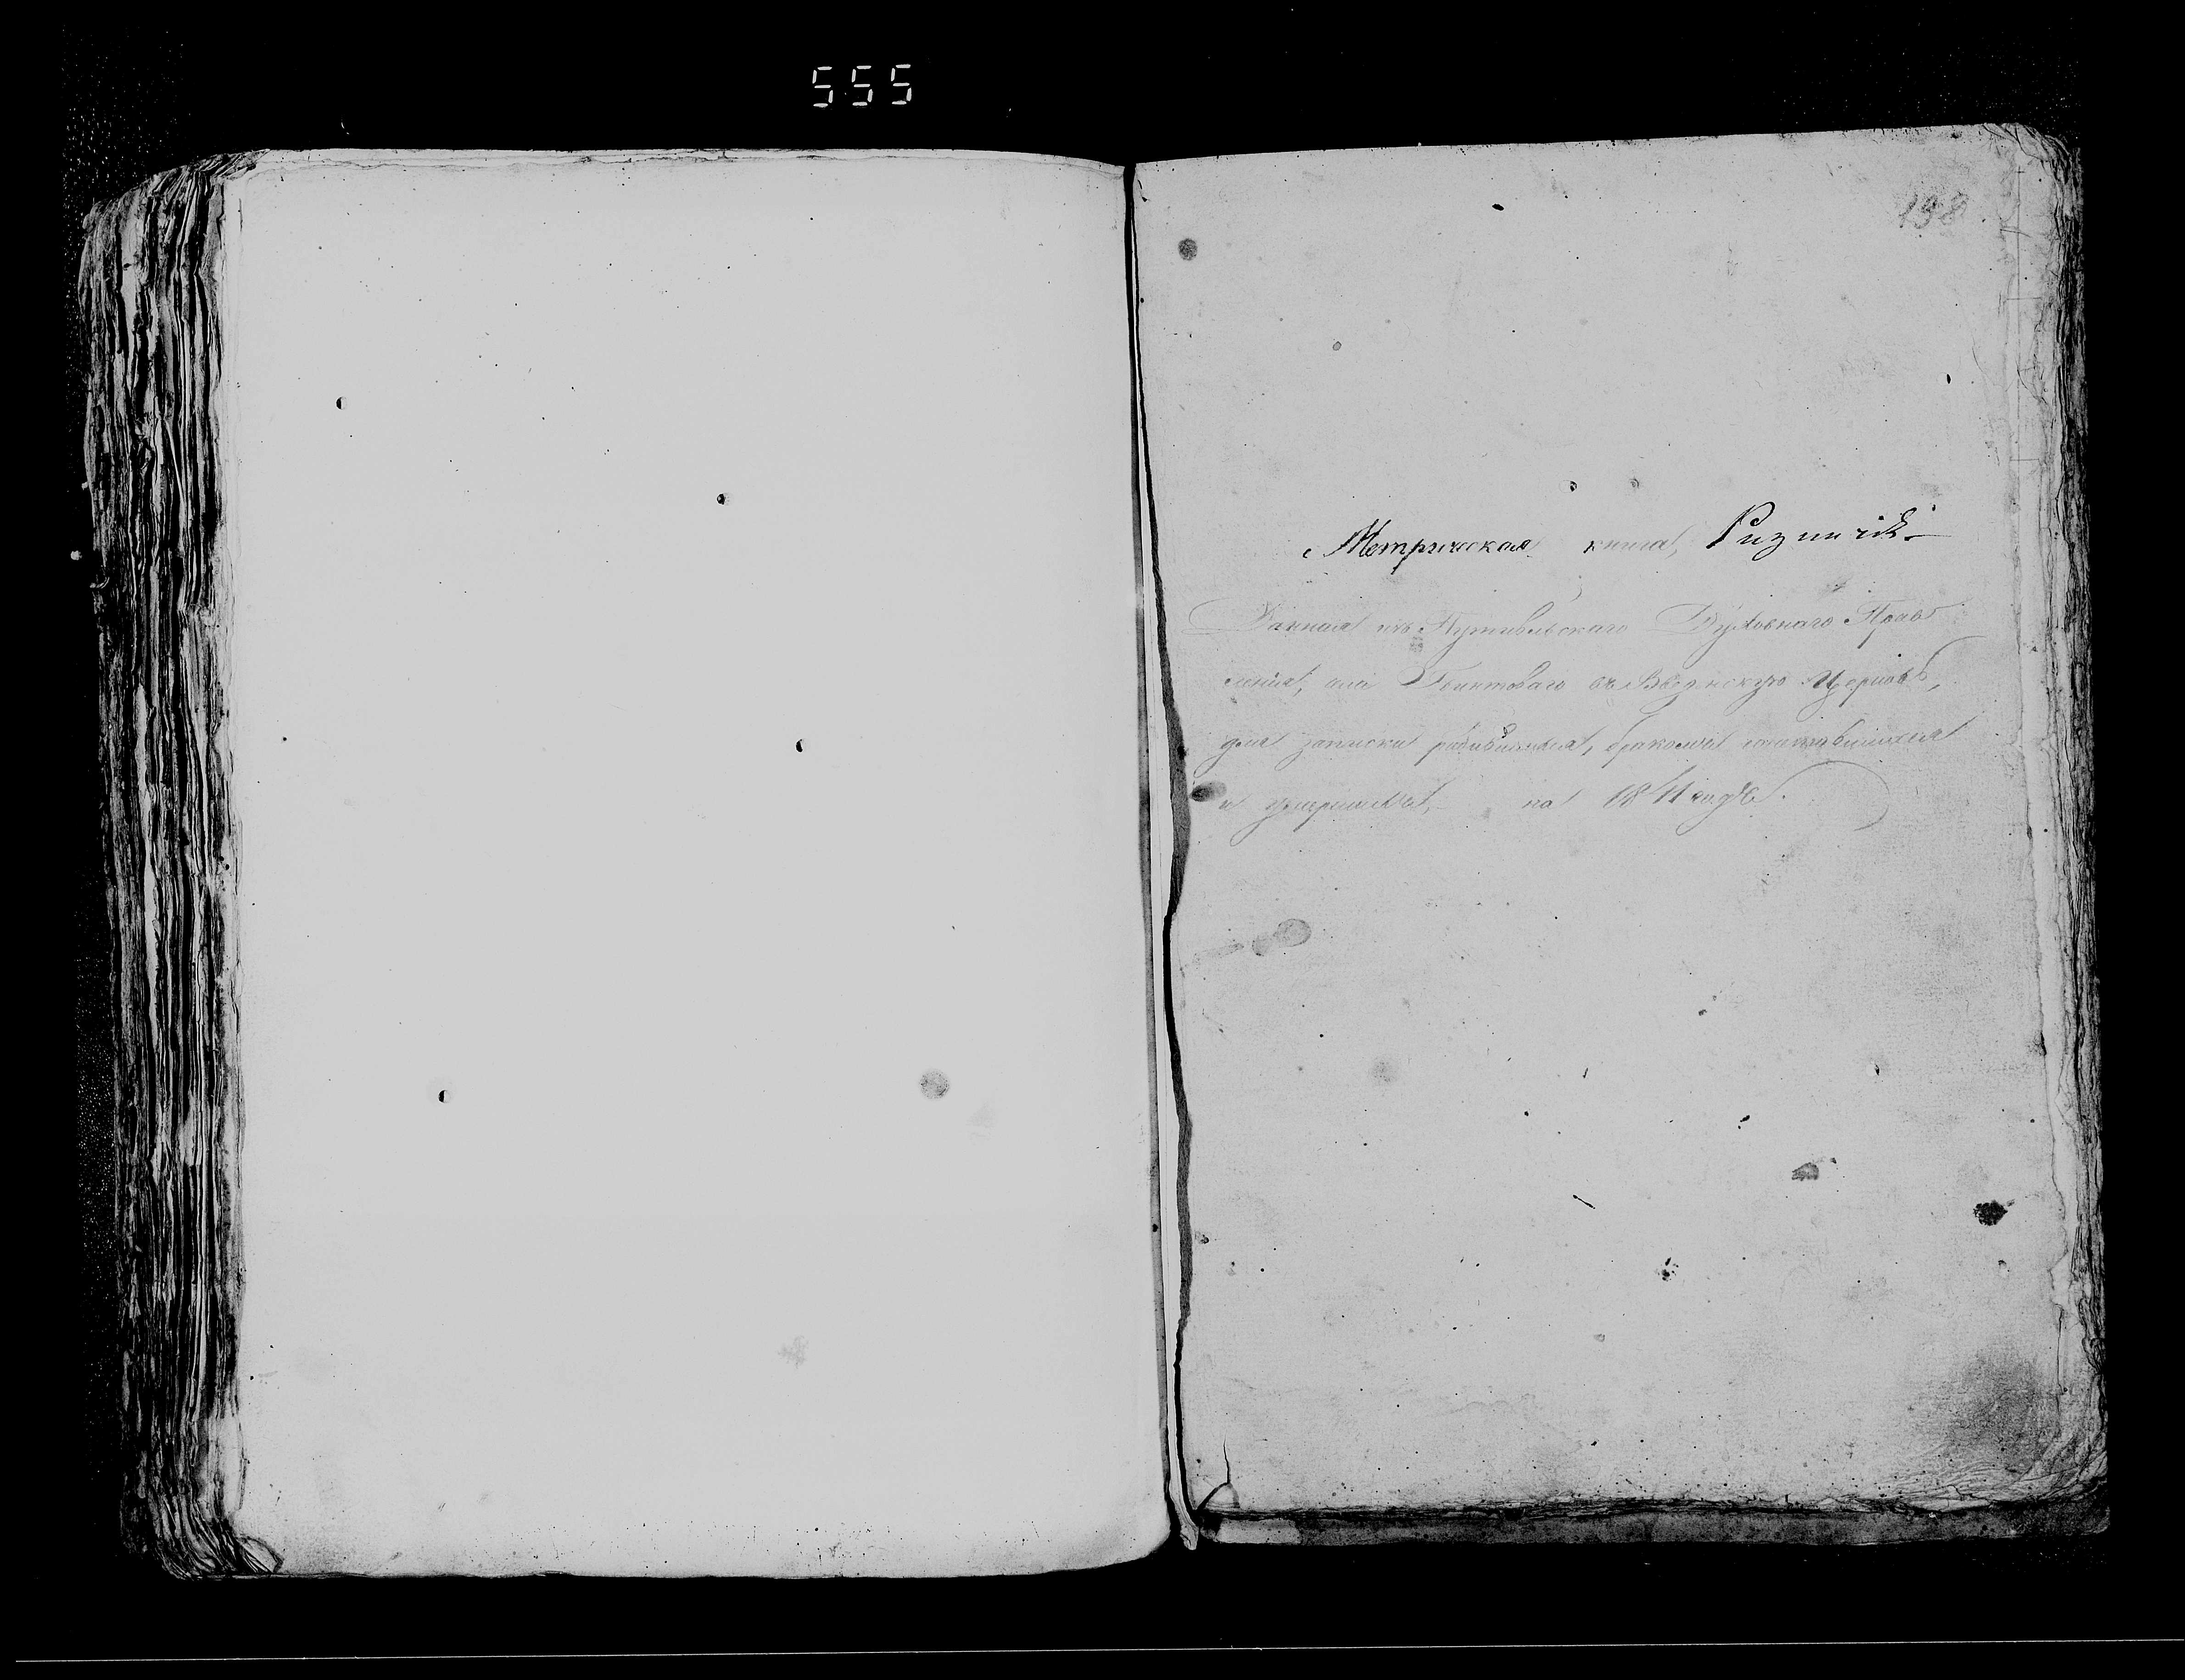 555
198
Метрическая книга,
Данная изъ Путивльскаго Духовнаго Прав
ленія, села Гвинтоваго въ Введенскую Церковь,
для записки родившихся, бракомъ сочетавшихся
и умершихъ, на 1841 годъ.